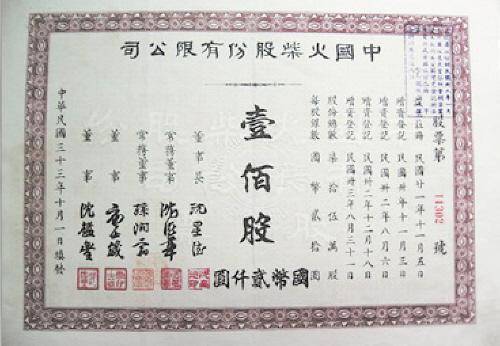 中國火柴股份有限公司
股票第 11302 號
註冊 民國廿一年十一月五日
增資登記 民國卅年十一月三日
增資登記 民國卅二年八月六日
增資登記 民國卅二年十二月十八日
增資登記 民國卅三年八月三十一日
股份總數 柒拾伍萬股
每股銀數 國幣貳拾圓
壹佰股
國幣貳仟圓
董事長 沈星德
常務董事
常務董事
董事
董事
中華民國三十三年十月一日填發